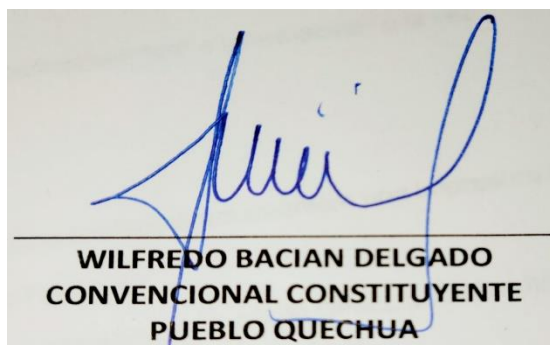 WILFREDO BACIAN DELGADO
CONVENCIONAL CONSTITUYENTE
PUEBLO QUECHUA